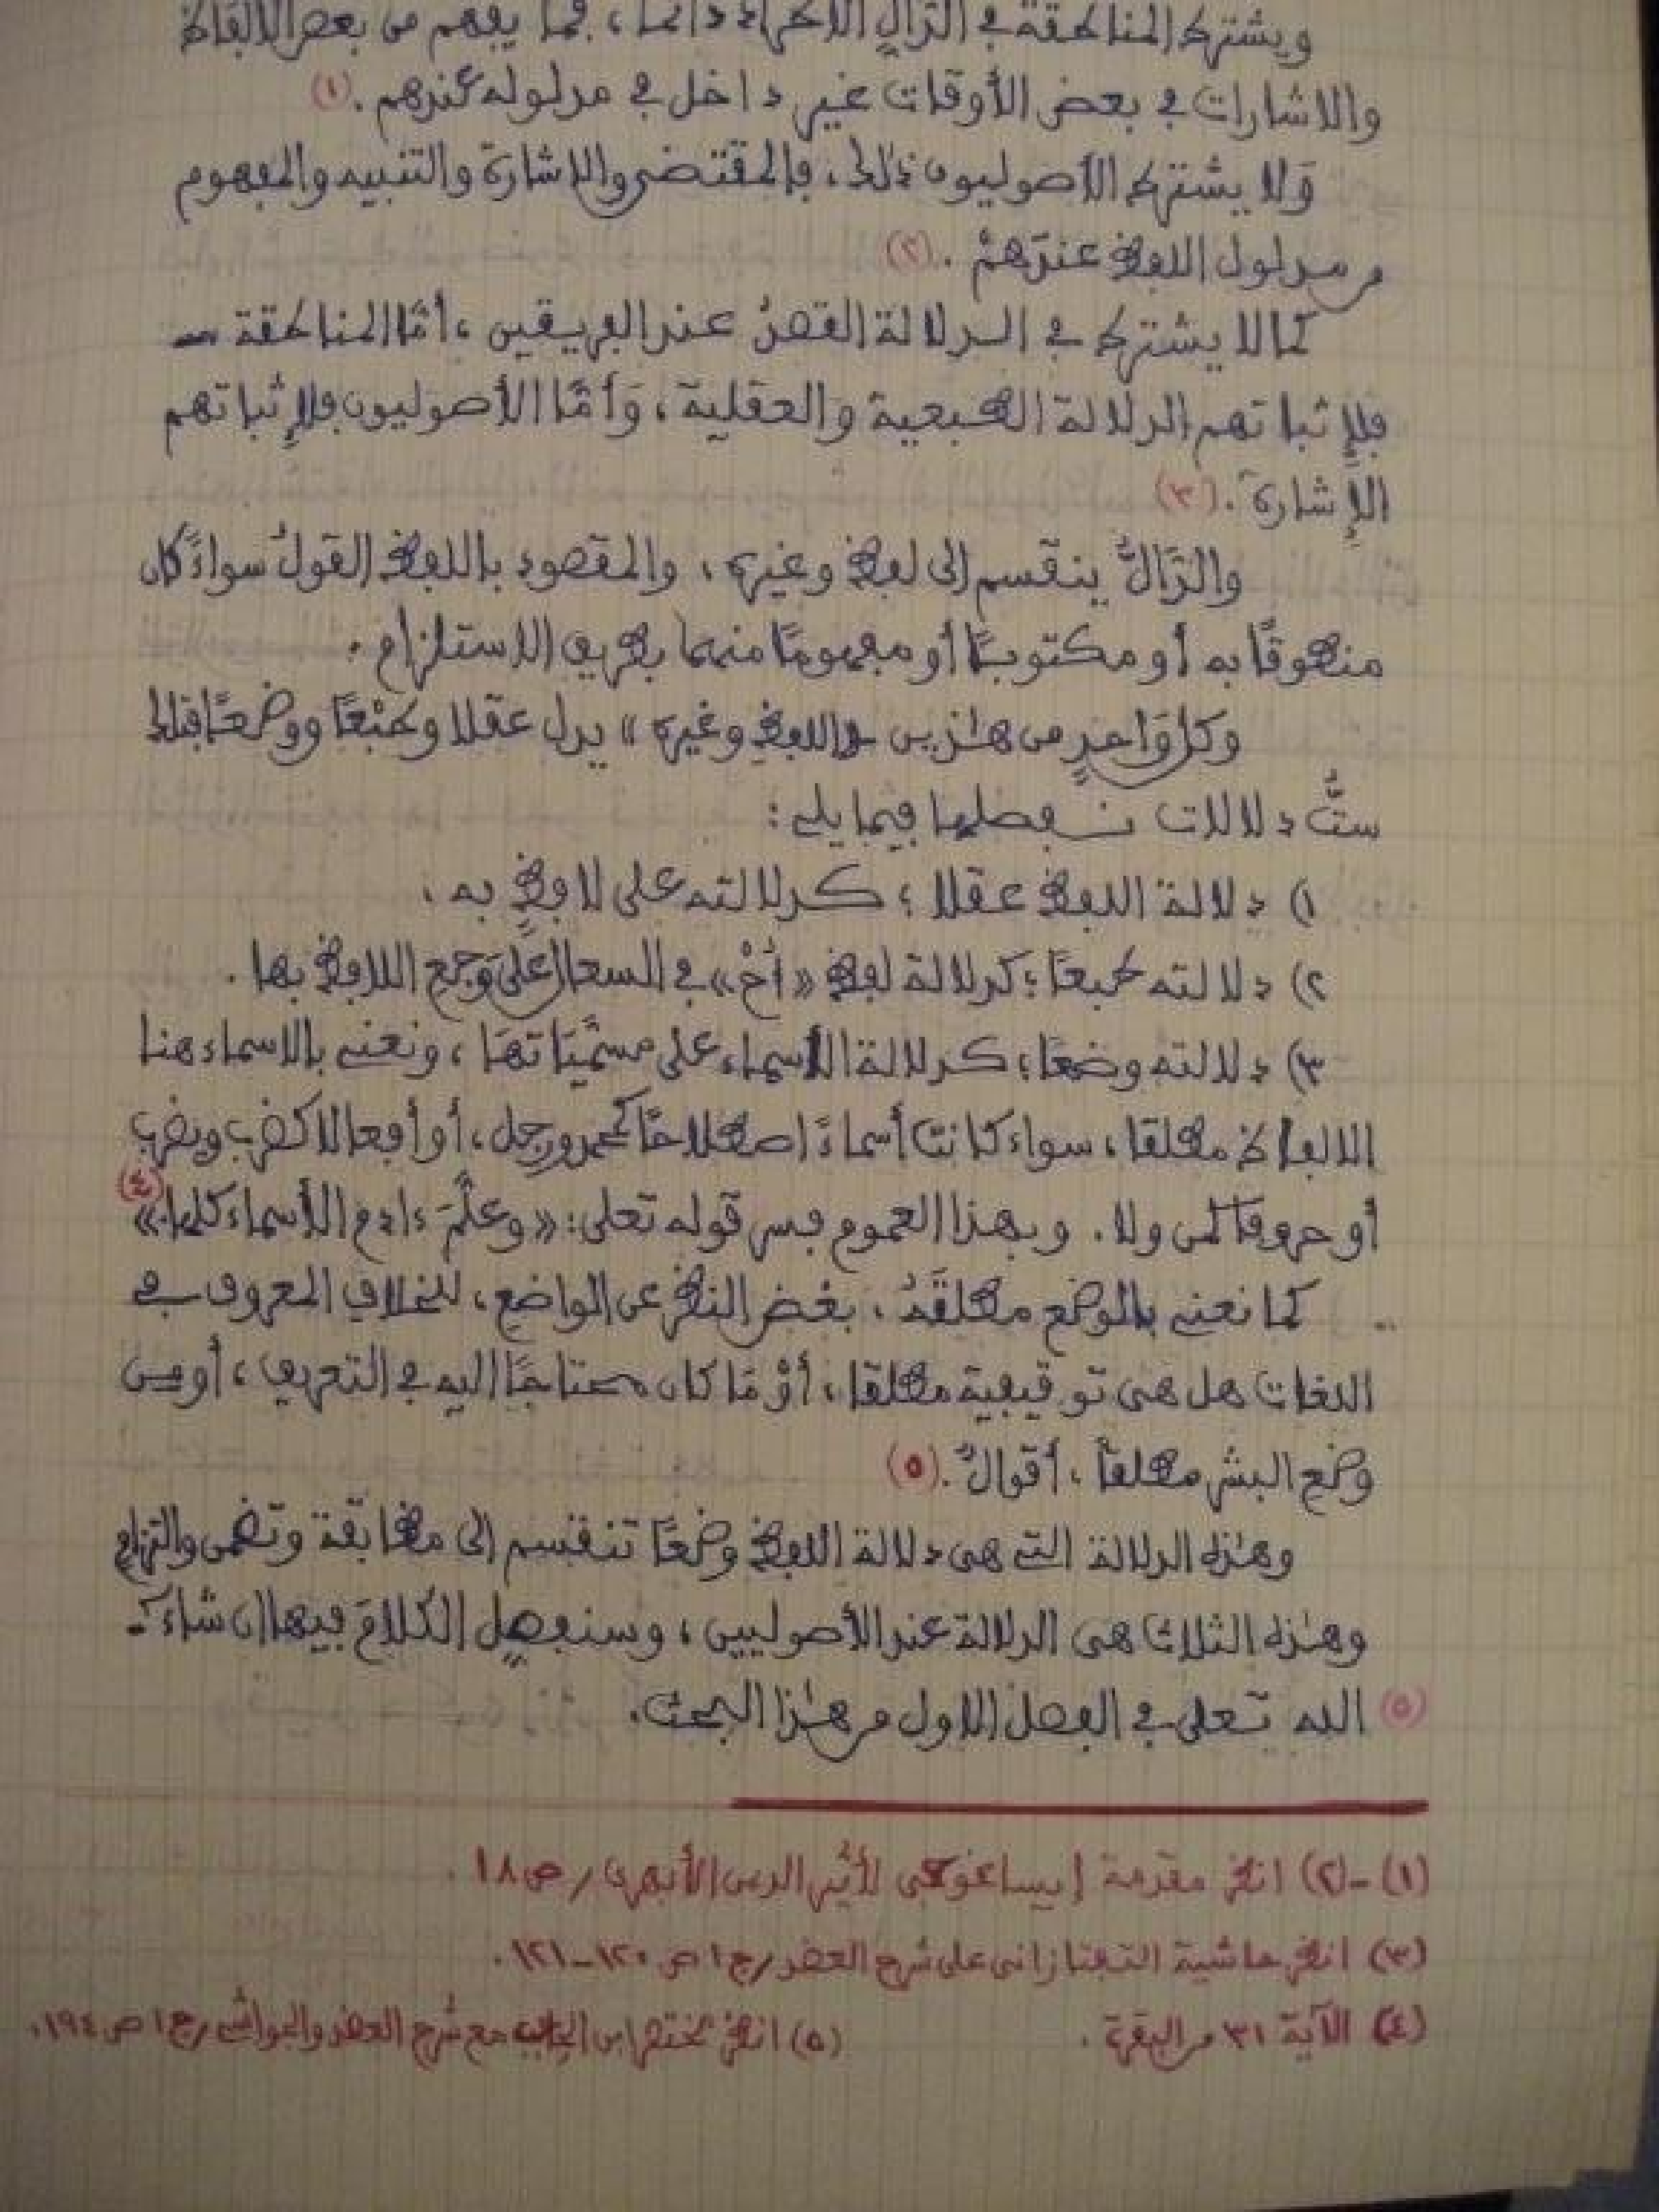 ويشترط المناطقة في الدالِّ الاطراد دائما، فما يفهم من بعض الألفاظ
والاشارات في بعض الأوقات غير داخل في مدلوله عندهم. (١)
وَلا يشترط الأصوليون ذلك، فالمقتضى والاشارة والتنبيه والمفهوم
من مدلول اللفظ عندَهمْ. (٢)
كما لا يشترط في الدلالة القصدُ عند الفريقين، أمَّا المناطقة
فلإثباتهم الدلالة الطبيعية والعقلية، وَأمَّا الأصوليون فلإِثباتهم
الإِشارة. (٣)
والدَّالُّ ينقسم إلى لفظ وغيره، والمقصود باللفظ القولُ سواءً كان
منطوقًا به أو مكتوبًا أو مفهومًا منهما بطريق الاستلزام.
وكل وَاحدٍ من هٰذين «اللفظ وغيره» يدل عقلا وطبْعًا ووضعًا فتلك
ستُّ دلالات نفصلها فيما يلي:
١) دلالة اللفظ عقلا؛ كدلالته على لافظٍ به.
٢) دلالته طبعًا؛ كدلالة لفظ «أحْ» في السعال على وجع اللافظ بها.
٣) دلالته وضعًا؛ كدلالة الأسماء على مسمَّيَاتهَا، ونعني بالاسماء هنا
الالفاظ مطلقا، سواء كانت أسماءً اصطلاحًا كمحمد ورجل، أو أفعالا كضرب ويضرب
أو حروفا كمن ولا. وبهذا العموم فسر قوله تعلى: «وعلَّمَ ءادم الأسماء كلها» (٤)
كما نعني بالوضع مطلقَهُ، بغض النظر عن الواضع، للخلاف المعروف في
اللغات هل هي توقيفية مطلقا، أوْ مَا كان محتاجًا إليه في التعريف، أو من
وضع البشر مطلقاً، أقوالٌ. (٥)
وهٰذه الدلالة التي هي دلالة اللفظ وضعًا تنقسم إلى مطابقة وتضمن والتزام
وهٰذه الثلاث هي الدلالة عند الأصوليين، وسنفصل الكلامَ فيها إن شاءَ
(٥) الله تعلى في الفصل الاول من هٰذا البحث.
(١)-(٢) انظر مقدمة إيساغوجي لأثير الدين الأبهري/ ص ١٨.
(٣) انظر حاشية التفتازاني على شرح العضد/ ج ١ ص ١٢٠-١٢١.
(٤) الآية ٣١ من البقرة. (٥) انظر مختصر ابن الحاجب مع شرح العضد والحواشي/ ج ١ ص ١٩٤.